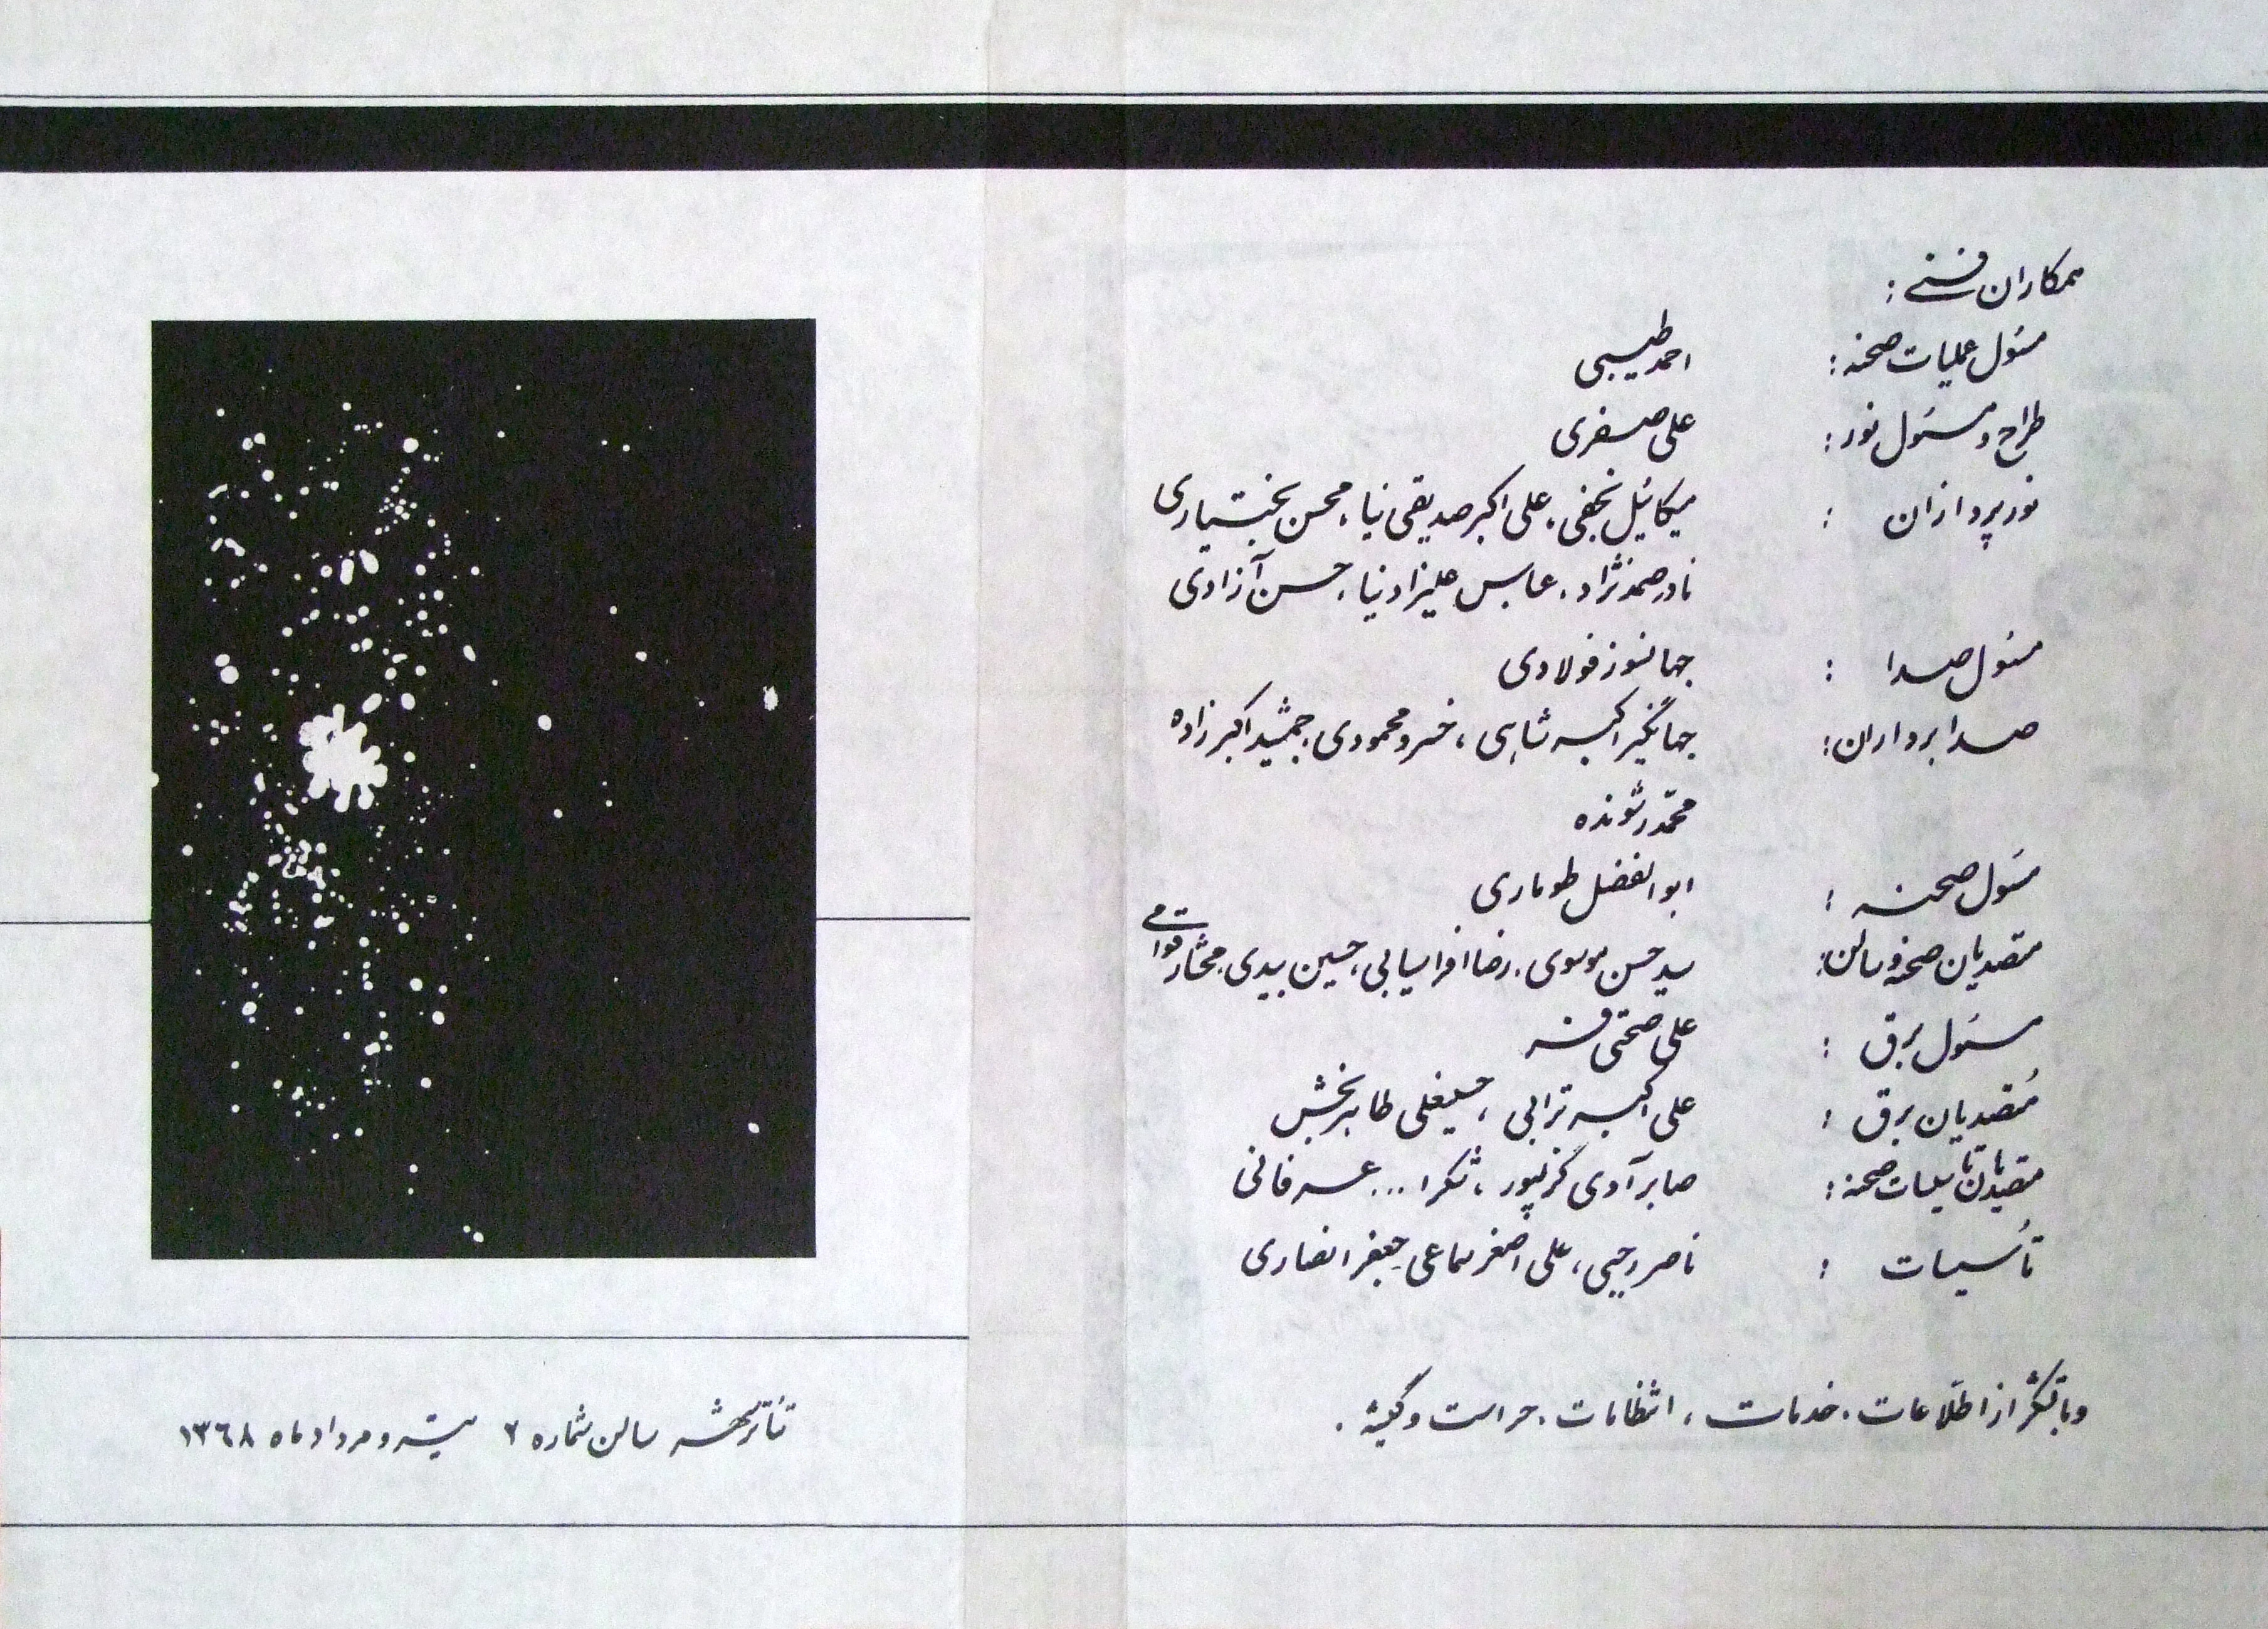 همکاران فنی :
مسئول عملیات صحنه : احمد طبیبی
طراح و مسئول نور : علی صفری
نورپردازان : میکائیل نجفی ، علی اکبر صدیقی نیا ، محسن بختیاری
نادر صمدنژاد ، عباس علیزاد نیا ، حسن آزادی
مسئول صدا : جهانسوز فولادی
صدابرداران : جهانگیر اکبرشاهی ، خسرو محمودی ، جمشید اکبرزاده
محمد رشونده
مسئول صحنه : ابوالفضل طوماری
متصدیان صحنه و سالن : سید حسن موسوی ، رضا افراسیابی ، حسین بیدی ، مختار قوامی
مسئول برق : علی صحتی
متصدیان برق : علی اکبر ترابی ، حسینعلی طاهربخش
متصدیان تأسیسات صحنه : صابر آدی گزلپور ، شکرا... عرفانی
تأسیسات : ناصر رجبی ، علی اصغر سماعی ، جعفر انصاری
و با تشکر از اطلاعات ، خدمات ، انتظامات ، حراست و گیشه .
تئاتر شهر سالن شماره ۲ تیر و مرداد ماه ۱۳۶۸